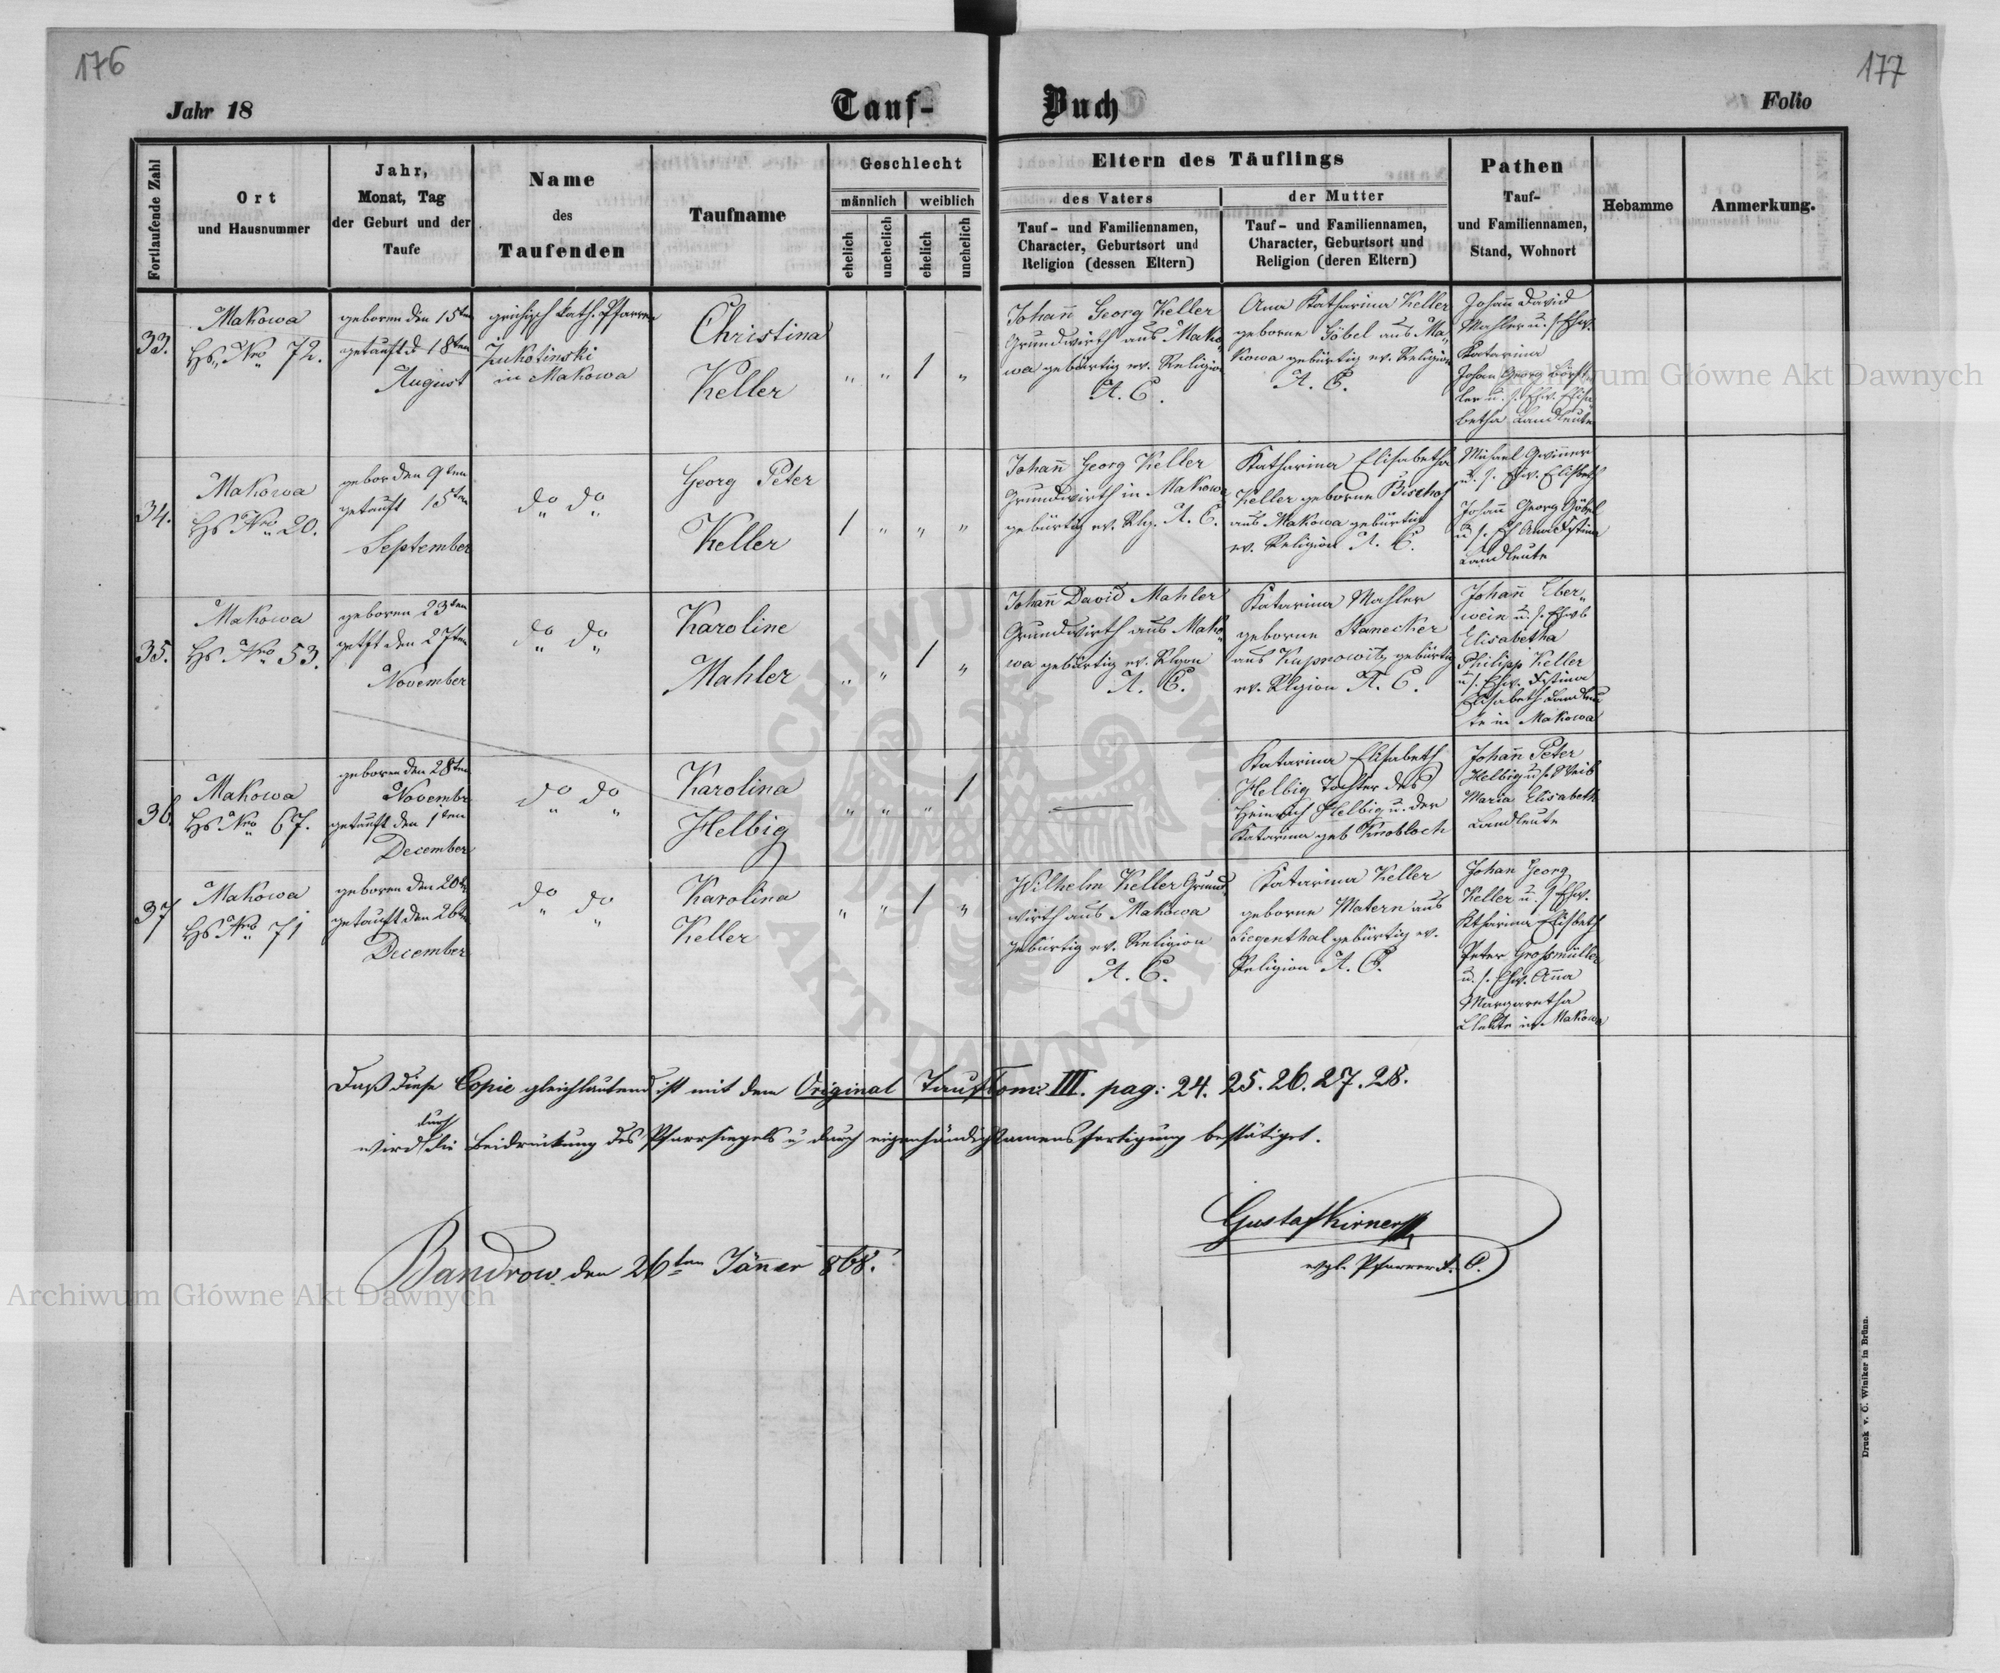 176
177
Jahr 18
Tauf-
Buch
Folio
Fortlaufende Zahl
Ort
und Hausnummer
Jahr,
Monat, Tag
der Geburt und der
Taufe
Name
des
Taufenden
Taufname
Geschlecht
männlich
weiblich
ehelich
unehelich
ehelich
unehelich
Eltern des Täuflings
des Vaters
Tauf- und Familiennamen,
Character, Geburtsort und
Religion (dessen Eltern)
der Mutter
Tauf- und Familiennamen,
Character, Geburtsort und
Religion (deren Eltern)
Pathen
Tauf-
und Familiennamen,
Stand, Wohnort
Hebamme
Anmerkung.
33.
Makowa
Hs. Nro 72.
geboren den 15ten
getauft d 18ten
August
grichisch kath. Pfarrer
Żukotinski
in Makowa
Christina
Keller
" " 1 "
Johann Georg Keller
Grundwirth aus Mako-
wa gebürtig ev. Religion
A. C.
Ana Katharina Keller
geborne Göbel aus Ma-
kowa gebürtig ev. Religion
A. C.
Johann David
Mahler u. s. Ehw.
Katarina
Johan Georg
u. s. Ehw. Elisa
betha Landleute
34.
Makowa
Hs Nro 20.
gebor den 9ten
getauft 15ten
September
do do
Georg Peter
Keller
1 " " "
Johann Georg Keller
Grundwirth in Makowa
gebürtig ev. Rlg. A. C.
Katharina Elisabetha
Keller geborne Bischof
aus Makowa gebürtig
ev. Religion A. C.
Michael Gwinner
u. s. Ehw. Elisbeth
Johann Georg Göbel
u. s.
Landleute
35.
Makowa
Hs. Nro 53.
geboren 23ten
getft den 27ten
November
do do
Karoline
Mahler
" " 1 "
Johann David Mahler
Grundwirth aus Mako-
wa gebürtig ev. Rlgion
A. C.
Katarina Mahler
geborne Stanecker
aus Kupnowitz gebürtig
ev. Rlgion A. C.
Johann Eber-
wein u. s. Ehwb
Elisabetha
Philipp Keller
u s. Ehw.
Elisabeth Landleu
te in Makowa
36.
Makowa
Hs Nro 67.
geboren den 28ten
Novembr
getauft den 1ten
December
do do
Karolina
Helbig
" " " 1
Katarina Elisabeth
Helbig Tochter des
Heinrich Helbig u. der
Katarina geb Knobloch
Johann Peter
Helbig u. s. Weib
Maria Elisabeth
Landleute
37
Makowa
Hs Nro 71
geboren den 20ten
getauft den 26ten
December
do do
Karolina
Keller
" " 1 "
Wilhelm Keller Grund
wirth aus Makowa
gebürtig ev. Religion
A. C.
Katarina Keller
geborne Matern aus
Siegenthal gebürtig ev.
Religion A. C.
Johan Georg
Keller u. s Ehw.
Ktharina Elisbeth
Peter Grossmüller
u. s. Ehw. Anna
Margaretha
Lleute in Makowa
Daß diese Copie gleichlautend ist mit dem Original Tauf Tom: III. pag: 24. 25. 26. 27. 28.
durch
wird die Beidruckung des Pfarrsiegels u durch eigenhändige Namensfertigung bestätiget.
Bandrow. den 26ten Jänner 868.
Gustaf Kirner
evgl. Pfarrer A. C.
Druck v. C. Winiker in Brünn.
Archiwum Główne Akt Dawnych
Archiwum Główne Akt Dawnych